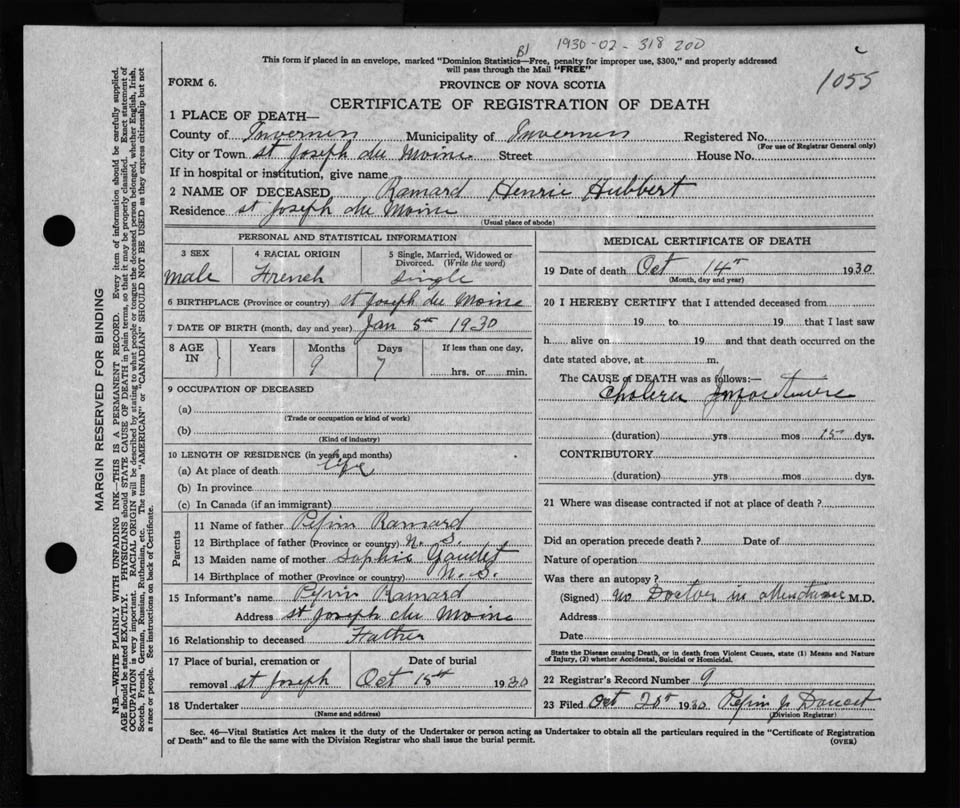 1930-02-318 200
BJ
1055
This form if placed in an envelope, marked "Dominion Statistics—Free, penalty for improper use, $300," and properly addressed
will pass through the Mail "FREE"
FORM 6.
PROVINCE OF NOVA SCOTIA
CERTIFICATE OF REGISTRATION OF DEATH
1 PLACE OF DEATH—
County of Inverness Municipality of Inverness Registered No.
(For use of Registrar General only)
City or Town St Joseph du Moine Street House No.
If in hospital or institution, give name
2 NAME OF DECEASED Ramard Henrie Hubbert
Residence St Joseph du Moine
(Usual place of abode)
PERSONAL AND STATISTICAL INFORMATION
3 SEX 4 RACIAL ORIGIN 5 Single, Married, Widowed or
Divorced. (Write the word)
Male French Single
6 BIRTHPLACE (Province or country) St Joseph du Moine
7 DATE OF BIRTH (month, day and year) Jan 8th 1930
8 AGE IN Years Months Days If less than one day,
9 7 hrs. or min.
9 OCCUPATION OF DECEASED
(a)
(Trade or occupation or kind of work)
(b)
(Kind of industry)
10 LENGTH OF RESIDENCE (in years and months)
(a) At place of death life
(b) In province
(c) In Canada (if an immigrant)
Parents
11 Name of father Pefin Ramard
12 Birthplace of father (Province or country) N. S.
13 Maiden name of mother Sophie Gaudet
14 Birthplace of mother (Province or country) N. S.
15 Informant's name Pefin Ramard
Address St Joseph du Moine
16 Relationship to deceased Father
17 Place of burial, cremation or Date of burial
removal St Joseph Oct 15th 1930
18 Undertaker
(Name and address)
MEDICAL CERTIFICATE OF DEATH
19 Date of death Oct 14th 1930
(Month, day and year)
20 I HEREBY CERTIFY that I attended deceased from
19 to 19 that I last saw
h alive on 19 and that death occurred on the
date stated above, at m.
The CAUSE of DEATH was as follows:—
Cholera
(duration) yrs mos 15 dys.
CONTRIBUTORY
(duration) yrs mos dys.
21 Where was disease contracted if not at place of death?
Did an operation precede death? Date of
Nature of operation
Was there an autopsy?
(Signed) no Doctor in attendance M.D.
Address
Date
State the Disease causing Death, or in death from Violent Causes, state (1) Means and Nature
of Injury, (2) whether Accidental, Suicidal or Homicidal.
22 Registrar's Record Number 9
23 Filed Oct 20th 1930 Pefin J. Doucet
(Division Registrar)
Sec. 46—Vital Statistics Act makes it the duty of the Undertaker or person acting as Undertaker to obtain all the particulars required in the "Certificate of Registration
of Death" and to file the same with the Division Registrar who shall issue the burial permit.
(OVER)
MARGIN RESERVED FOR BINDING
N.B.—WRITE PLAINLY WITH UNFADING INK—THIS IS A PERMANENT RECORD. Every item of information should be carefully supplied.
AGE should be stated EXACTLY. PHYSICIANS should STATE CAUSE OF DEATH in plain terms, so that it may be properly classified. Exact statement of
OCCUPATION is very important. RACIAL ORIGIN will be described by stating to what people or tongue the deceased person belonged, whether English, Irish,
Scotch, French, German, Russian, Ruthenian, etc. The terms "AMERICAN" or "CANADIAN" SHOULD NOT BE USED as they express citizenship but not
a race or people. See instructions on back of Certificate.